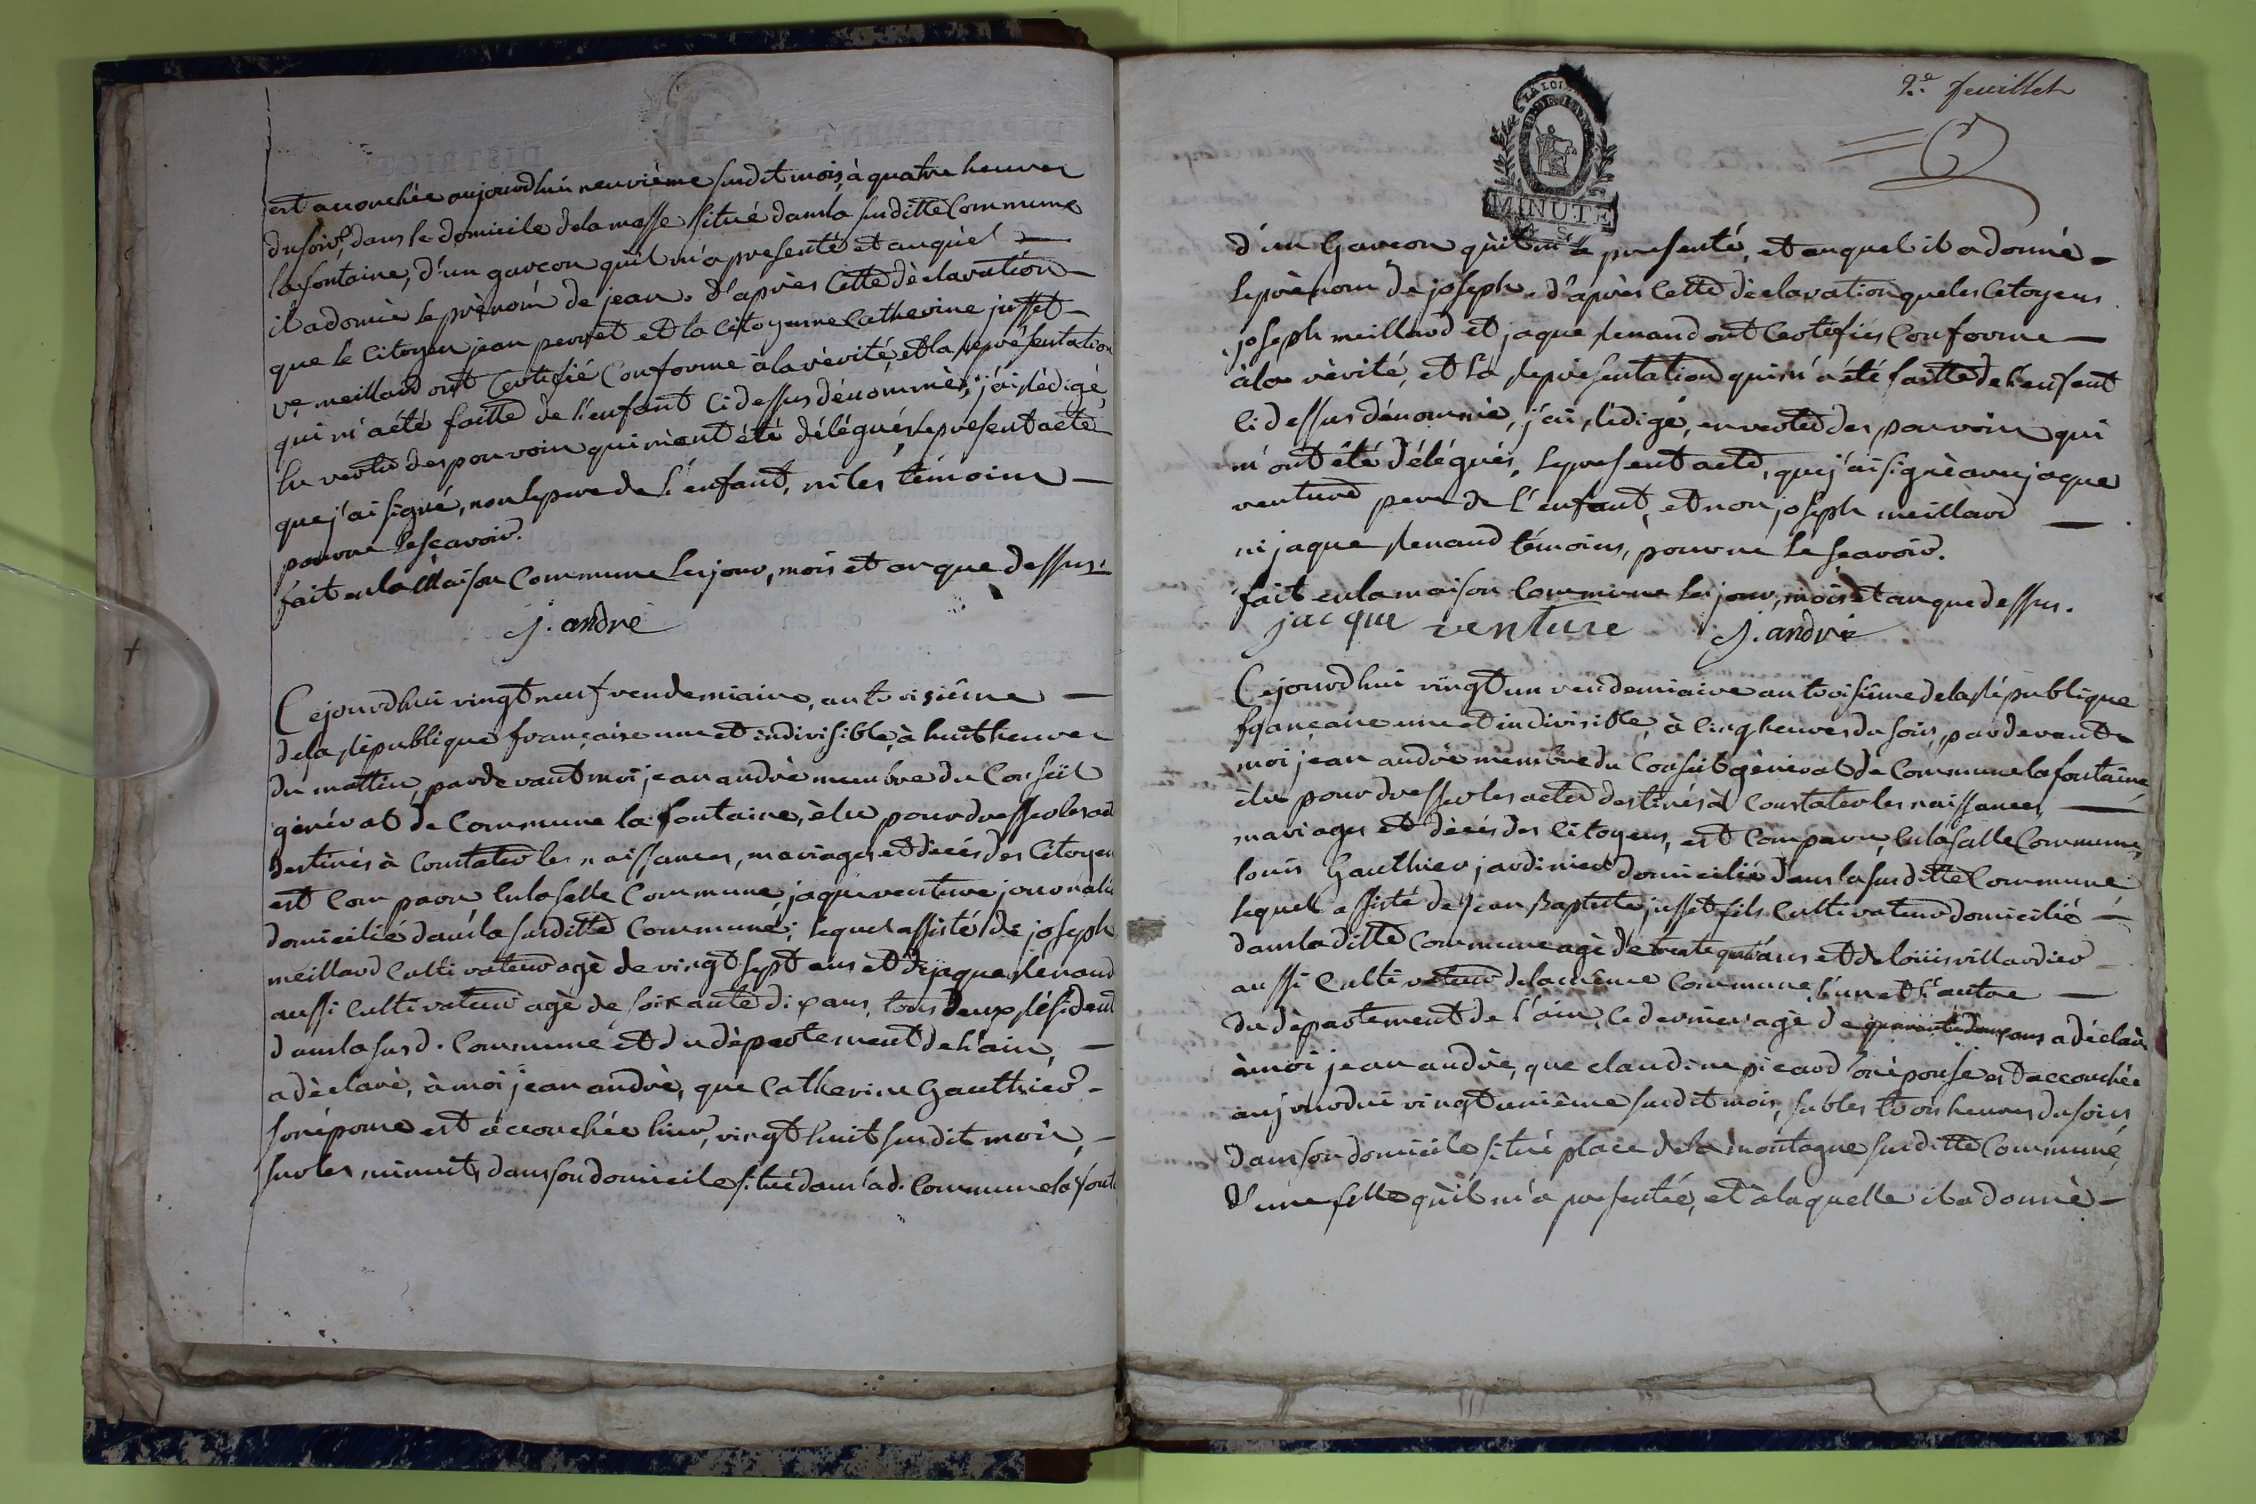 est accouchée aujourdhui neuvième susdit mois, à quatre heures
du soir, dans le domicile de la masse situé dans la susditte Commune
la fontaine, d'un garcon qu'il m'a presenté et auquel
il a donnè le prènom de jean. d'après Cette dèclaration
que le Citoyen jean perret et la Citoyenne Catherine jusset
Ve meillard ont Certifié Conforme à la vèrité, et la reprèsentation
qui m'a été faitte de l'enfant Ci dessus dénommè, j'ai rèdigé
En vertu des pouvoirs qui m'ont été délégués le present acte
que j'ai signé, non le pere de l'enfant, ni les témoins
pour ne le sçavoir.
fait en la Maison Commune les jour, mois et an que dessus.
j. andré
Cejourdhui vingt neuf vendemiaire, an troisième
de la république française une et indivisible, à huit heures
du mattin, pardevant moi jean andrè membre du Conseil
gènèral de Commune la fontaine, èlu pour dresser les act
destinés à Constater les naissances, mariages et décés des Citoyen
est Comparu En la salle Commune jaque venture journali
domicilié dans la susditte Commune; lequel assisté de joseph
meillard Cultivateur agè de vingt sept ans et de jaque renand
aussi Cultivateur agè de soixante dix ans, tous deux résident
dans la susd. Commune et du dèpartement de l'ain,
a dèclarè, à moi jean andrè, que Catherine Gauthier
son épouse est accouchée hier, vingt huit susdit mois,
sur les minuit, dans son domicile situé dans lad. Commune la font
2e. feuillet
LA LOI
MINUTE
d'un Garcon qu'il m'a presenté, et auquel il a donné
le prènom de joseph. d'après Cette dèclaration que les Citoyens
joseph meillard et jaque renand ont Certifiés Conforme
à la vèrité, et la reprèsentation qui m'a été faitte de l'enfant
Ci dessus dénommé, j'ai rèdigé, en vertu des pouvoirs qui
m'ont été délégués, le present acte, que j'ai signè avec jaque
venture pere de l'enfant, et non joseph meillard
ni jaque renand témoins, pour ne le sçavoir.
fait en la maison Commune les jour, mois et an que dessus.
jacque venture j. andrè
Cejourdhui vingt un vendemiaire an troisième de la république
française une et indivisible, à Cinq heures du soir, pardevant
moi jean andrè membre du Conseil gènèral de Commune la fontaine
élu pour dresser les actes destinés à Constater les naissances,
mariages et dècés des Citoyens, est Comparu, En la salle Commune,
louis Gauthier jardinier domicilié dans la susditte Commune
lequel assisté de Jean Baptiste jusset fils Cultivateur domicilié
dans laditte Commune agè de ans et de louis villardier
aussi Cultivateur de la même Commune, l'un et l'autre
du dèpartement de l'ain, le dernier agè de quarante deux ans a déclaré
à moi jean andrè, que claudine picard son épouse est accouchée
aujourdui vingt unième susdit mois, sur les trois heures du soir
dans son domicile situé place de la montagne susditte Commune,
d'une fille qu'il m'a presentée, et à laquelle il a donnè